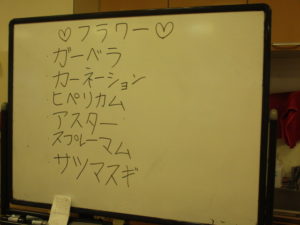 ♡フラワー♡
ガーベラ
カーネーション
ヒペリカム
アスター
スプレーマム
サツマスギ